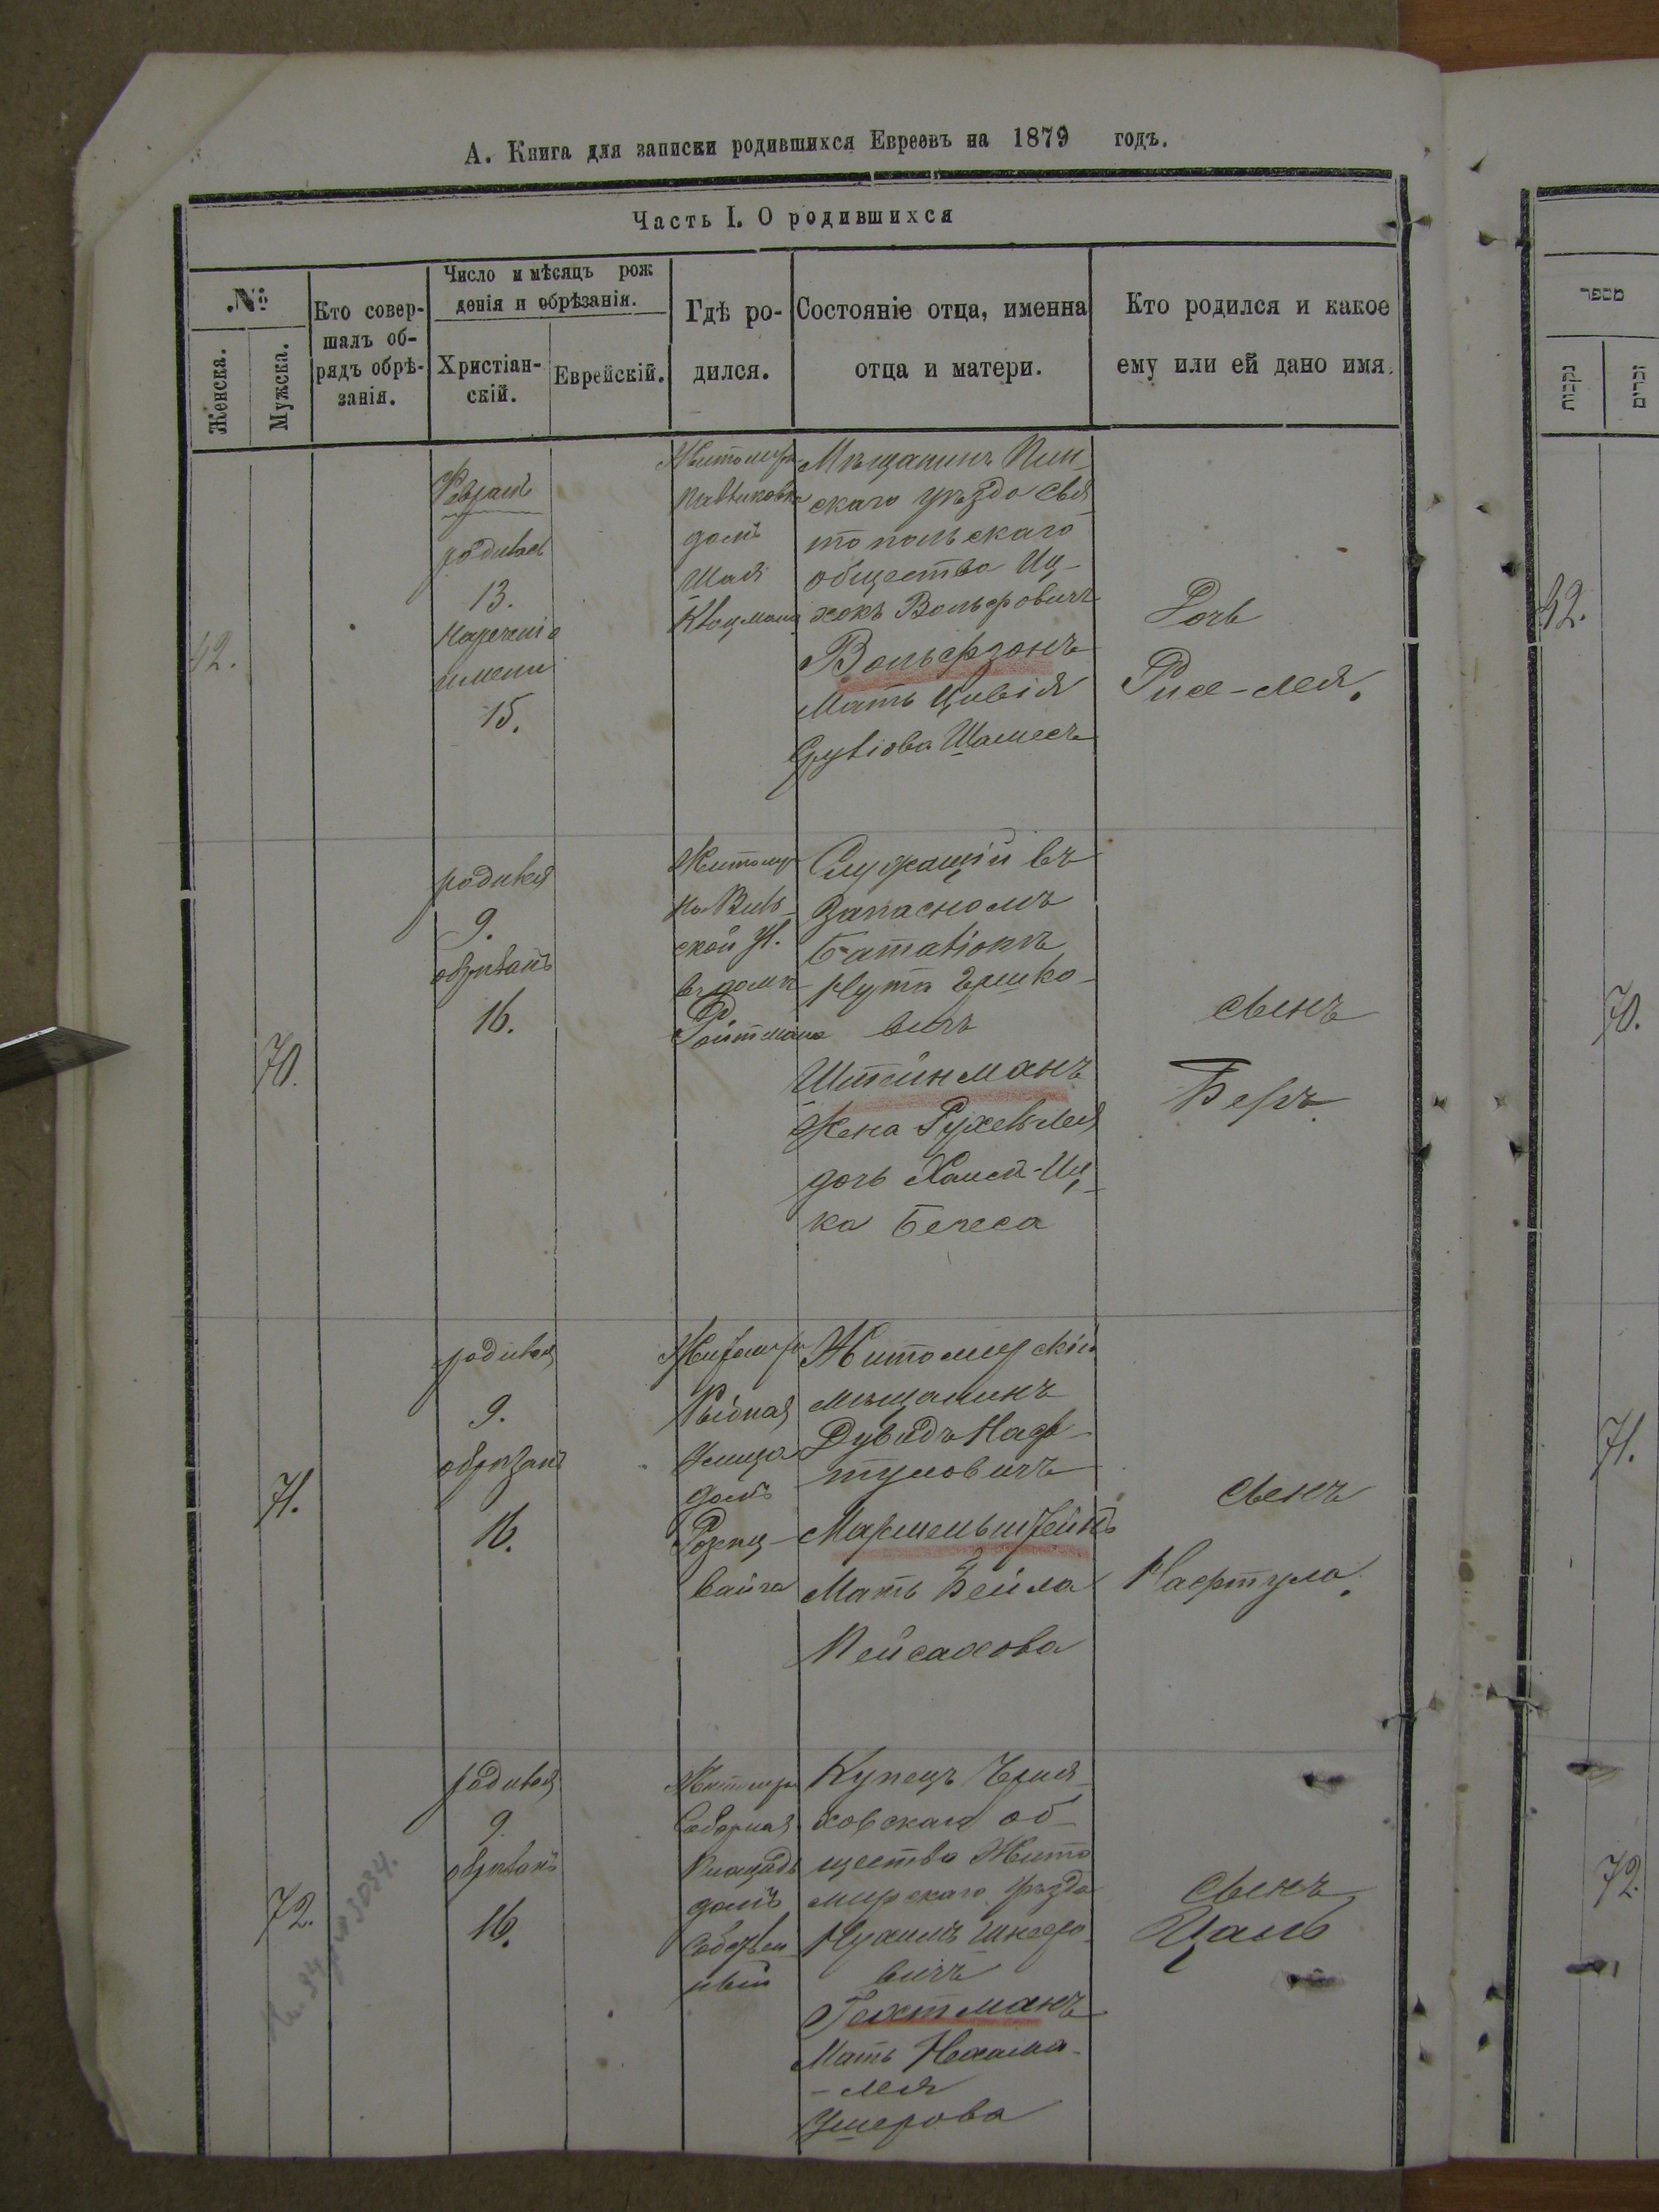 А. Книга для записки родившихся Евреевъ на 1879 годъ.
Часть I. О родившихся
№
Женска.
Мужска.
Кто совер-
шалъ об-
рядъ обрѣ-
занія.
Число и мѣсяцъ рож
денія и обрѣзанія.
Христіан-
скій.
Еврейскій.
Гдѣ ро-
дился.
Состояніе отца, именна
отца и матери.
Кто родился и какое
ему или ей дано имя.
42.
родилась
13.
имени
15.
домъ
Шаи
Мѣщанинъ Пин-
скаго уѣзда Свя
топольскаго
общества Иц-
хокъ Вольфовичъ
Вольфзонъ
Мать Цивія
Шамесъ
Дочь
Рися-лея.
70.
родился
9.
обрѣзанъ
16.
Житомир
ской ул.
въ домѣ
Ройтмана
Служащій въ
Запасномъ
Баталіонѣ
вичъ
Штейнманъ
Жена Рухель-лея
дочь Хаим-Иц-
ка
сынъ
Беръ.
71.
родился
9.
обрѣзанъ
16.
Житомиръ
Рыбная
Улица
домъ
Розенц-
вайга
Житомирскій
мѣщанинъ
Дувидъ Наф-
туловичъ
Мармельштейнъ
Мать Бейла
Пейсахова
сынъ
Нафтула.
72.
родился
9.
обрѣзанъ
16.
Житомиръ
Соборная
Площадь
домъ
Собствен-
ный
Купецъ Черня-
ховскаго об-
щества Жито
мирскаго уѣзда
вичъ
Гехтманъ
Мать Нехама-
-лея
Ушерова
сынъ
Цаль
מספר
נקבות
זכרים
42.
70.
71.
72.